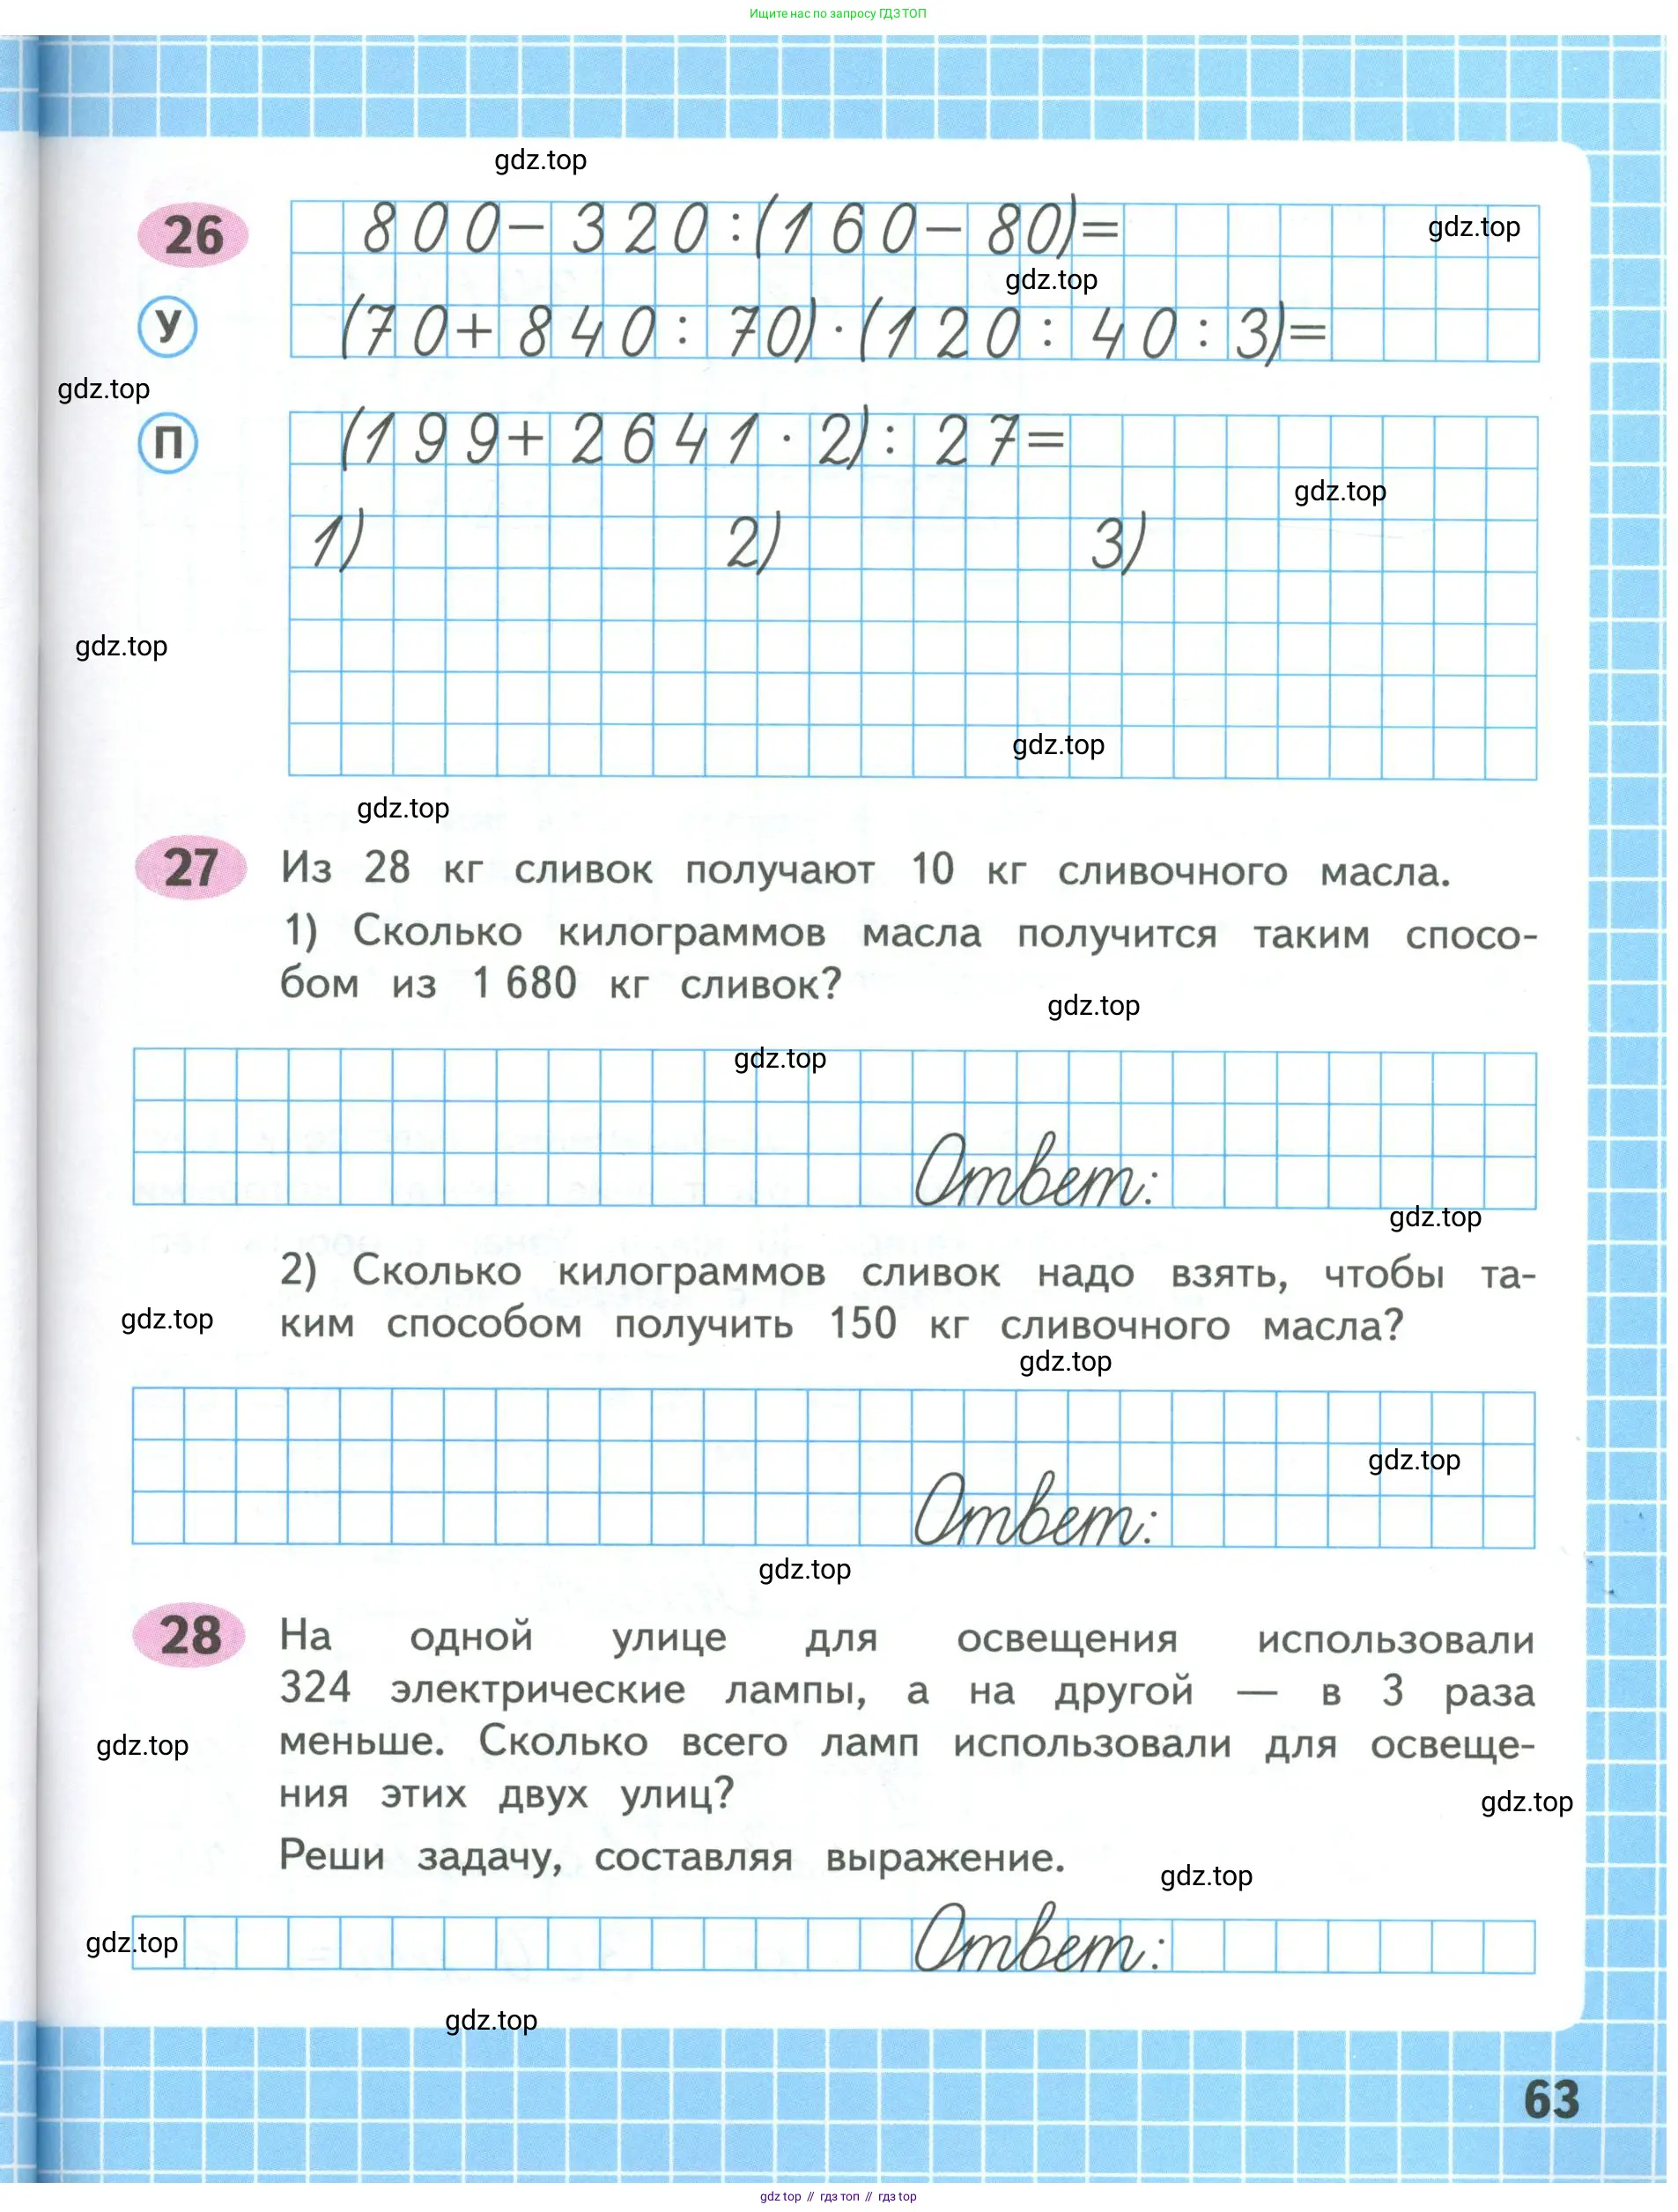 Ищите нас по запросу ГДЗ ТОП
gdz.top
26 800 − 320 : (160 − 80) =
gdz.top
gdz.top
У (70 + 840 : 70) · (120 : 40 : 3) =
gdz.top
П (199 + 2641 · 2) : 27 =
gdz.top
1) 2) 3)
gdz.top
gdz.top
gdz.top
27 Из 28 кг сливок получают 10 кг сливочного масла.
1) Сколько килограммов масла получится таким спосо-
бом из 1 680 кг сливок?
gdz.top
gdz.top
Ответ:
gdz.top
2) Сколько килограммов сливок надо взять, чтобы та-
gdz.top
ким способом получить 150 кг сливочного масла?
gdz.top
gdz.top
Ответ:
gdz.top
28 На одной улице для освещения использовали
324 электрические лампы, а на другой — в 3 раза
gdz.top
меньше. Сколько всего ламп использовали для освеще-
ния этих двух улиц?
gdz.top
Реши задачу, составляя выражение.
gdz.top
gdz.top
Ответ:
gdz.top
63
gdz.top // гдз топ // гдз top